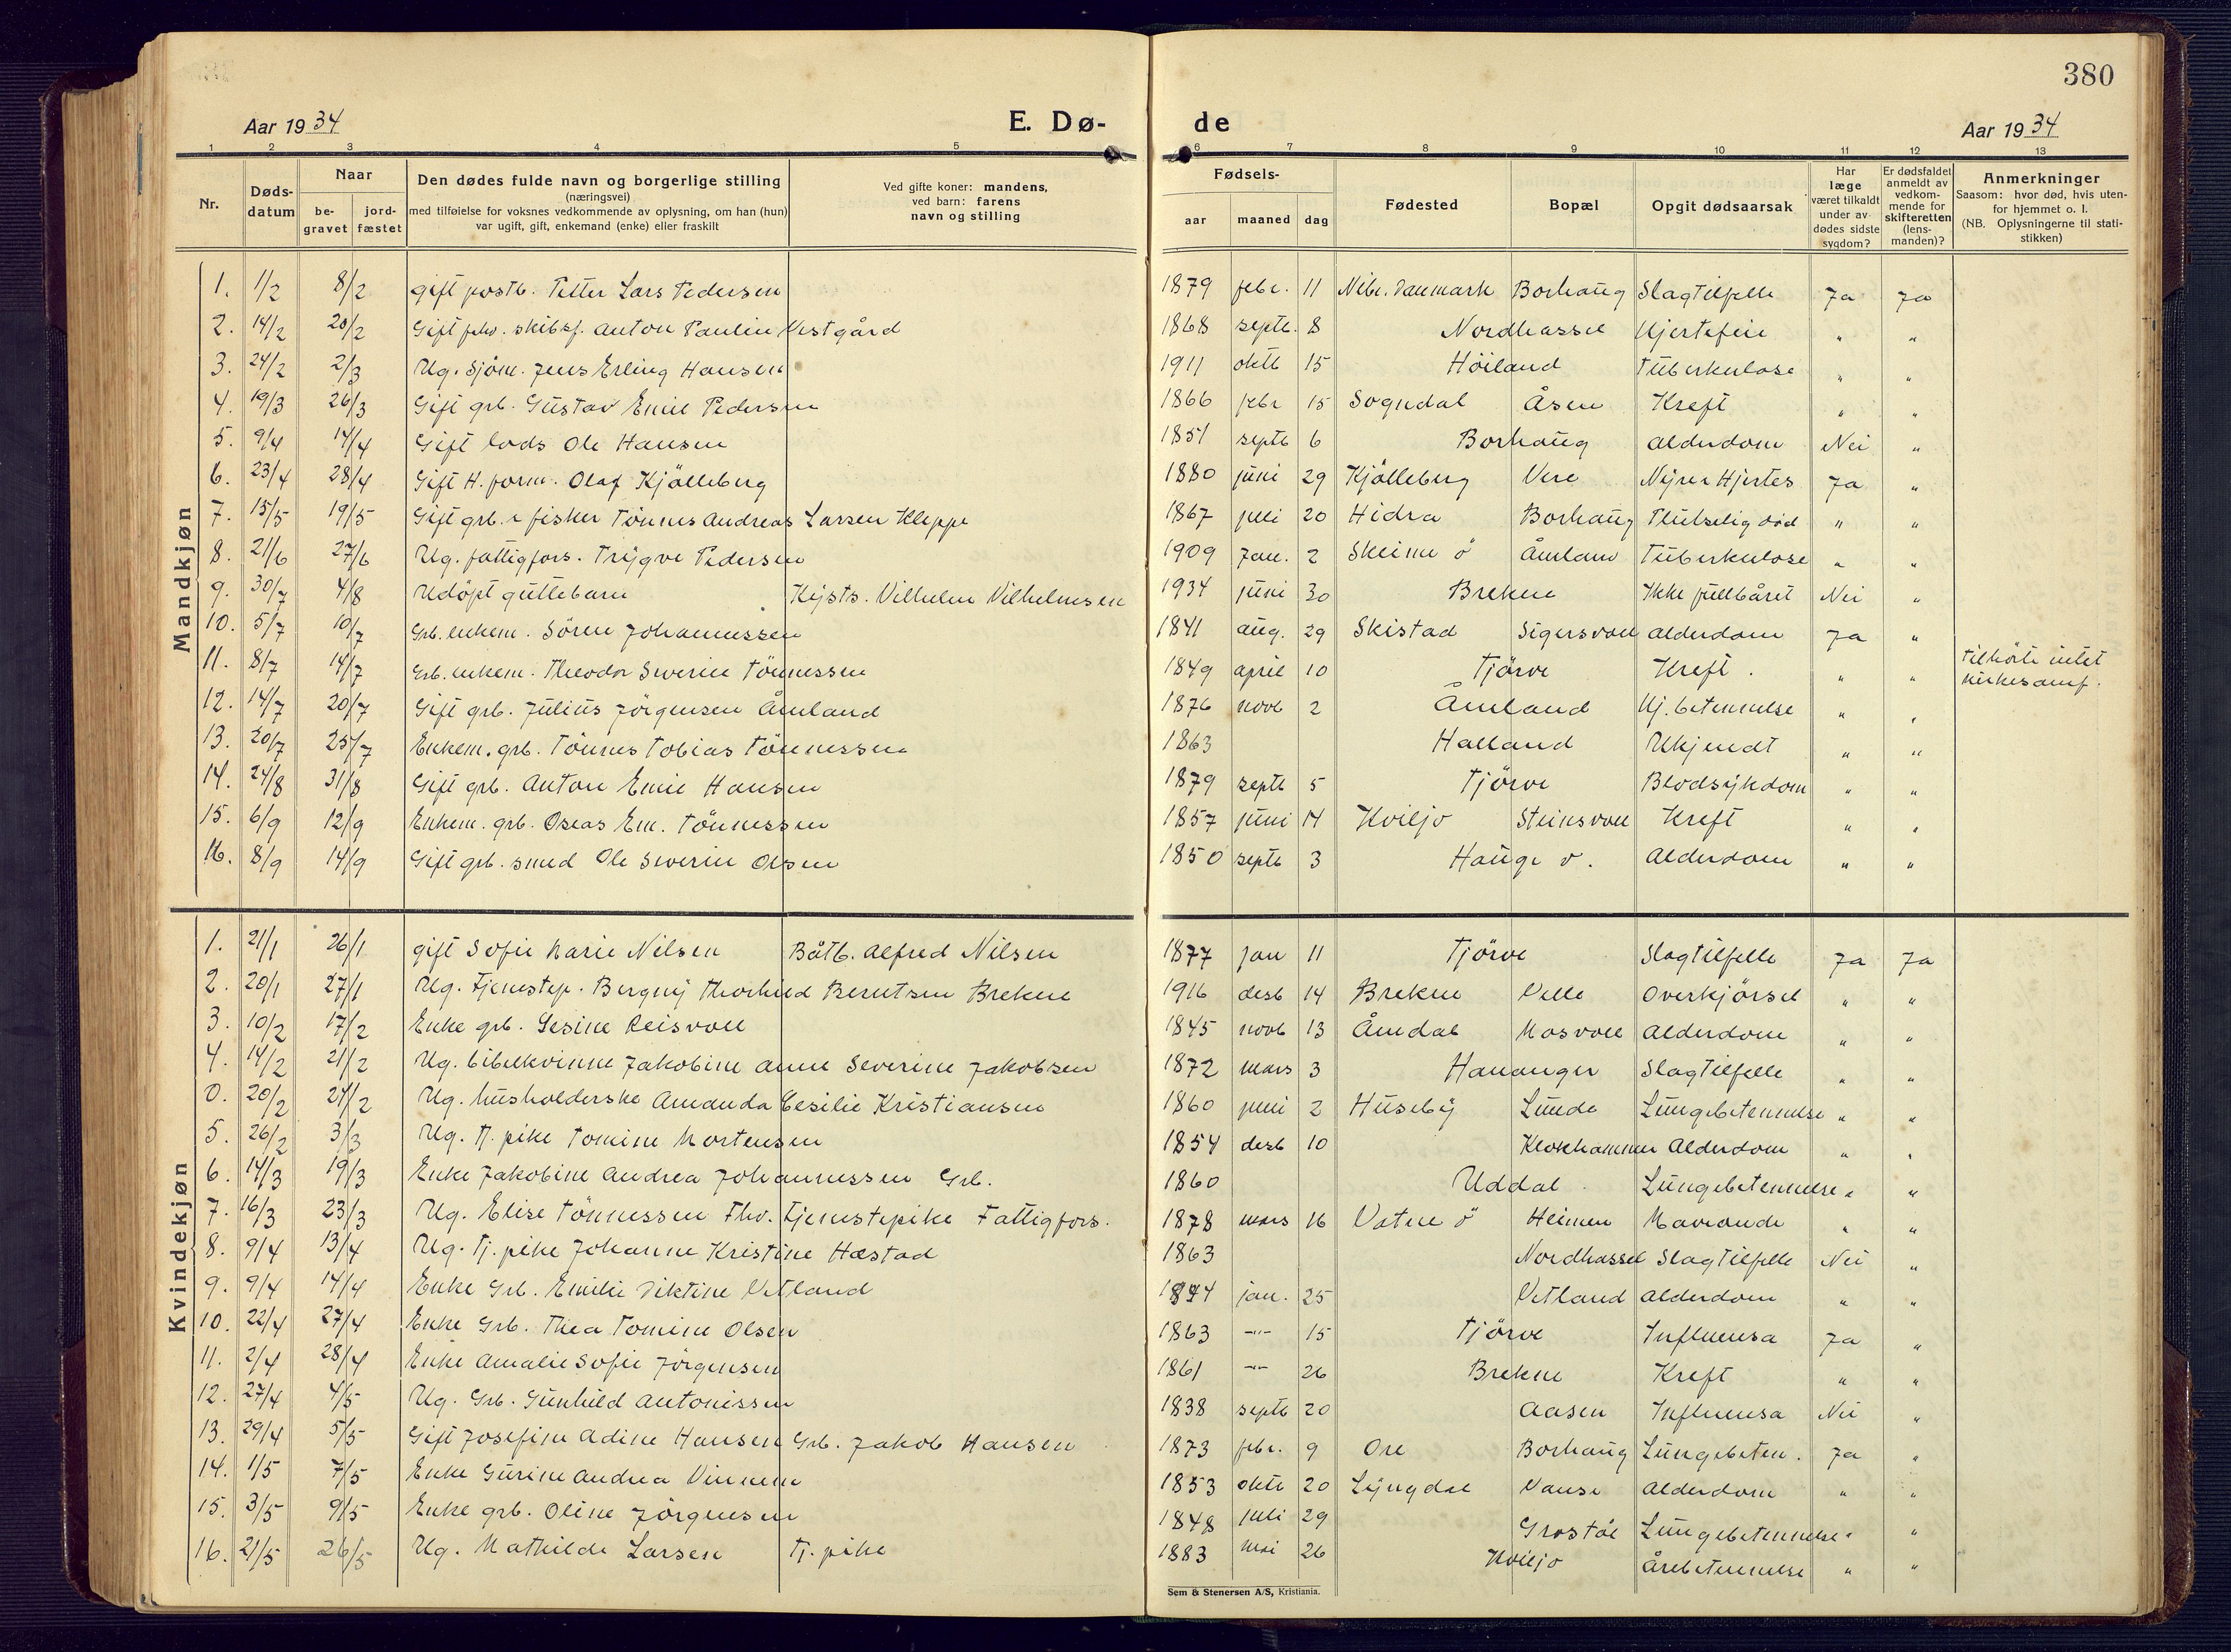 380
Aar 1934
E. Dø-
de
Aar 1934
1 2 3 4 5 6 7 8 9 10 11 12 13
Nr.
Døds-datum
Naar
be-gravet
jord-fæstet
Den dødes fulde navn og borgerlige stilling
(næringsvei)
med tilføielse for voksnes vedkommende av oplysning, om han (hun)
var ugift, gift, enkemand (enke) eller fraskilt
Ved gifte koner: mandens,
ved barn: farens
navn og stilling
Fødsels-
aar maaned dag
Fødested
Bopæl
Opgit dødsaarsak
Har læge været tilkaldt under av dødes sidste sygdom?
Er dødsfaldet anmeldt av vedkom-mende for skifteretten (lens-manden)?
Anmerkninger
Saasom: hvor død, hvis uten-for hjemmet o. l.
(NB. Oplysningerne til stati-stikken)
Mandkjøn
1. 1/2 8/2 gift postb. Petter Lars Pedersen 1879 febr. 11 Nibe. Danmark Borhaug Slagtilfelle Ja Ja
2. 14/2 20/2 Gift fhv. skibsf. Anton Paulin Vestgård 1868 septb. 8 Nordhassel Hjertefeil " "
3. 24/2 2/3 Ug. Sjöm. Jens Erling Hansen 1911 oktb 15 Höiland Tuberkulose " "
4. 19/3 26/3 Gift grb. Gustav Emil Pedersen 1866 febr 15 Sogndal Åsen Kreft " "
5. 9/4 14/4 Gift lods Ole Hansen 1851 septb 6 Borhaug Alderdom Nei "
6. 23/4 28/4 Gift H. form. Olaf Kjölleberg 1880 juni 29 Kjölleberg Vere Nyrer Hjertes Ja "
7. 15/5 19/5 Gift grb. & fisker Tönnes Andreas Larsen Kleppe 1867 juli 20 Hidra Borhaug Plutselig död " "
8. 21/6 27/6 Ug. fattigfors. Trygve Pedersen 1909 Jan. 2 Skeime ö Åmland Tuberkulose " "
9. 30/7 4/8 Udöpt guttebarn Kysts. Vilhelm Vilhelmsen 1934 juni 30 Brekne Ikke fullbåret Nei "
10. 5/7 10/7 Grb. enkem. Sören Johannessen 1841 aug. 29 Skistad Sigersvoll Alderdom Ja "
11. 8/7 14/7 Grb. enkem. Theodor Severin Tönnessen 1849 april 10 Tjörve Kreft. " " Tilhörte intet kirkesamf.
12. 14/7 20/7 Gift grb. Julius Jörgensen Åmland 1876 novb 2 Åmland Hj. betennelse " "
13. 20/7 25/7 Enkem. grb. Tönnes Tobias Tönnessen 1863 Halland Ukjendt " "
14. 24/8 31/8 Gift grb. Anton Emil Hansen 1879 septb 5 Tjörve Blodsykdom " "
15. 6/9 12/9 Enkem. grb. Oseas Em. Tönnessen 1857 juni 14 Kviljo Steinsvoll Kreft " "
16. 8/9 14/9 Gift grb. smed Ole Severin Olsen 1850 septb 3 Hauge v. Alderdom " "
Kvindekjøn
1. 21/1 26/1 gift Sofie Marie Nilsen Båtb. Alfred Nilsen 1877 jan 11 Tjörve Slagtilfelle Ja Ja
2. 20/1 27/1 Ug. Tjenestep. Bergny Thorhild Berntsen Brekne 1916 desb 14 Brekne Velle Overkjörsel " "
3. 10/2 17/2 Enke grb. Gesine Reisvoll 1845 novb 13 Åmdal Mosvoll Alderdom " "
4. 14/2 21/2 Ug. bibelkvinne Jakobine Anne Severine Jakobsen 1872 mars 3 Hananger Slagtilfelle " "
0. 20/2 24/2 Ug. husholderske Amanda Cesilie Kristiansen 1860 juni 2 Huseby Lunde Lungebetennelse " "
5. 26/2 3/3 Ug. tj. pike Tomine Mortensen 1854 desb 10 Klokhammer Alderdom " "
6. 14/3 19/3 Enke Jakobine Andrea Johannessen Grb. 1860 Uddal Lungebetennelse " "
7. 16/3 23/3 Ug. Elise Tönnessen Fhv. Tjenestepike Fattigfors. 1878 mars 16 Vatne ö Heimen Maveonde " "
8. 9/4 13/4 Ug. Tj. pike Johanne Kristine Hæstad 1863 Nordhassel Slagtilfelle Nei "
9. 9/4 14/4 Enke Grb. Emilie Diktine Vetland 1844 jan. 25 Vetland Alderdom " "
10. 22/4 27/4 Enke Grb. Thea Tomine Olsen 1863 -"- 15 Tjörve Influensa Ja "
11. 2/4 28/4 Enke Amalie Sofie Jörgensen 1861 -"- 26 Brekne Kreft " "
12. 27/4 4/5 Ug. Grb. Gunhild Antonissen 1838 septb 20 Aasen Influensa Nei "
13. 29/4 5/5 Gift Josefine Adine Hansen Grb. Jakob Hansen 1873 febr. 9 Ore Borhaug Lungebeten. Ja "
14. 1/5 7/5 Enke Gurine Andrea Vinnem 1853 oktb 20 Lyngdal Vanse Alderdom " "
15. 3/5 9/5 Enke grb. Oline Jörgensen 1848 juli 29 Grostöl Lungebetennelse " "
16. 21/5 26/5 Ug. Mathilde Larsen Tj. pike 1883 mai 26 Kviljo Årebetennelse " "
Sem & Stenersen A/S, Kristiania.